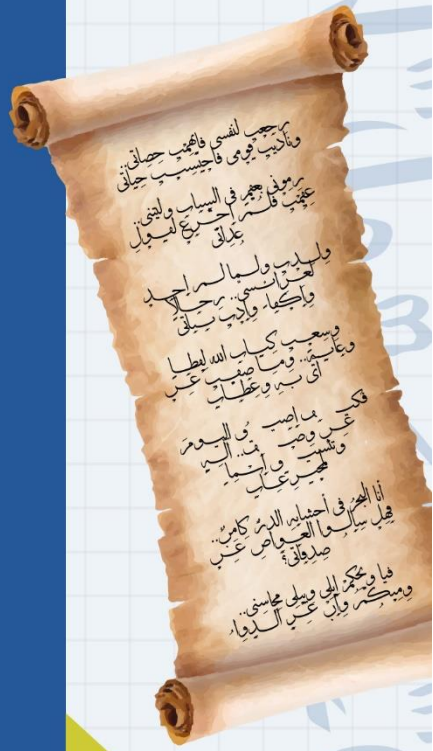 رجعت لنفسي فاتهمت حصاتي..
وناديت قومي فاحتسبت حياتي
رموني بعقم في الشباب وليتني..
عقمت فلم أجزع لقول
عداتي
ولدت ولما لم أجد
لعرائسي.. رجالا
وأكفاء وأدت بناتي
وسعت كتاب الله لفظا
وغاية.. وما ضقت عن
آي به وعظات
فكيف أضيق اليوم
عن وصف آلة
أنا البحر في أحشائه الدر كامن..
فهل سألوا الغواص عن
صدفاتي؟
فيا ويحكم أبلى وتبلى محاسني..
ومنكم وإن عز الدواء